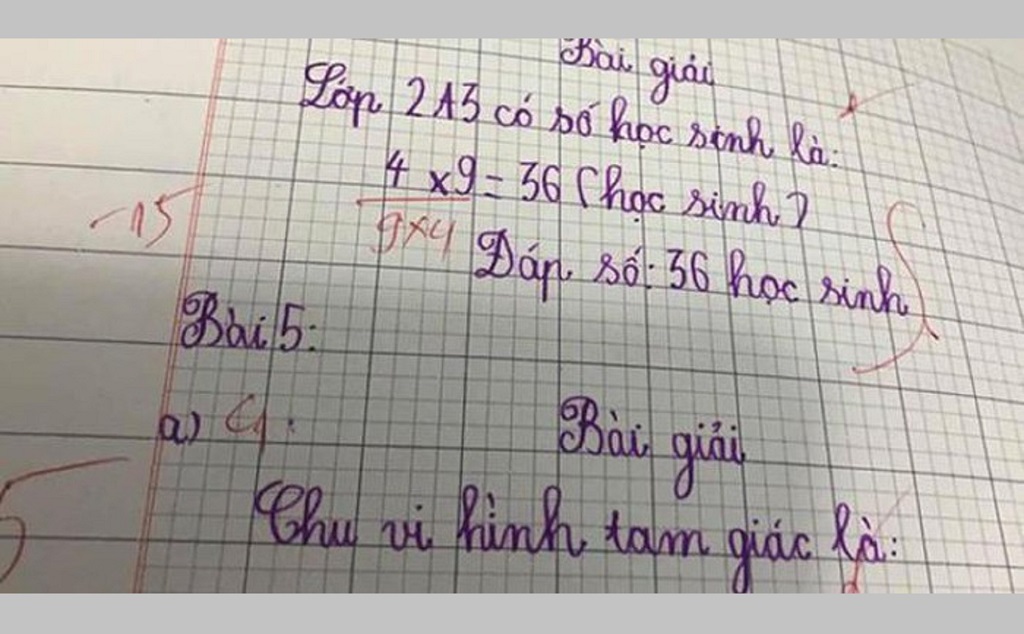 Bài giải
Lớp 2A3 có số học sinh là:
4 x 9 = 36 (học sinh)
-15
9x4
Đáp số: 36 học sinh
Bài 5:
a) C1:
Bài giải
Chu vi hình tam giác là: